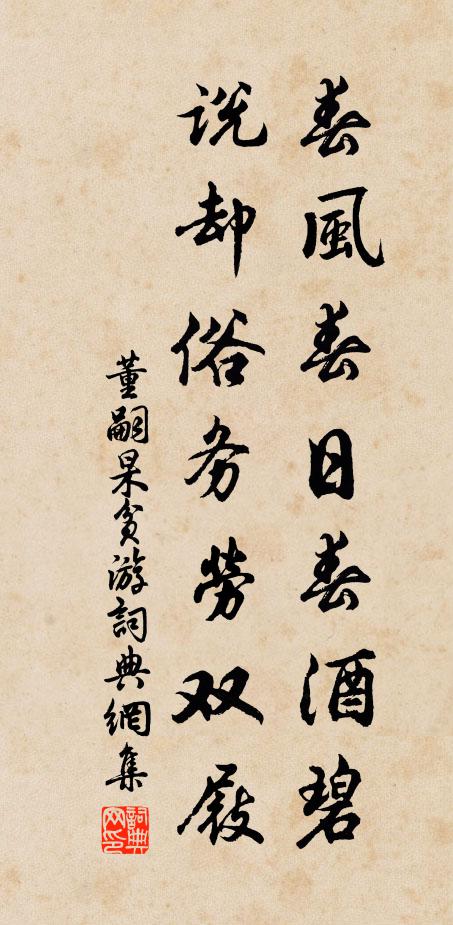 春風春日春酒碧
説却俗务勞双屐
董嗣杲貧游詞典網集
詞典網印